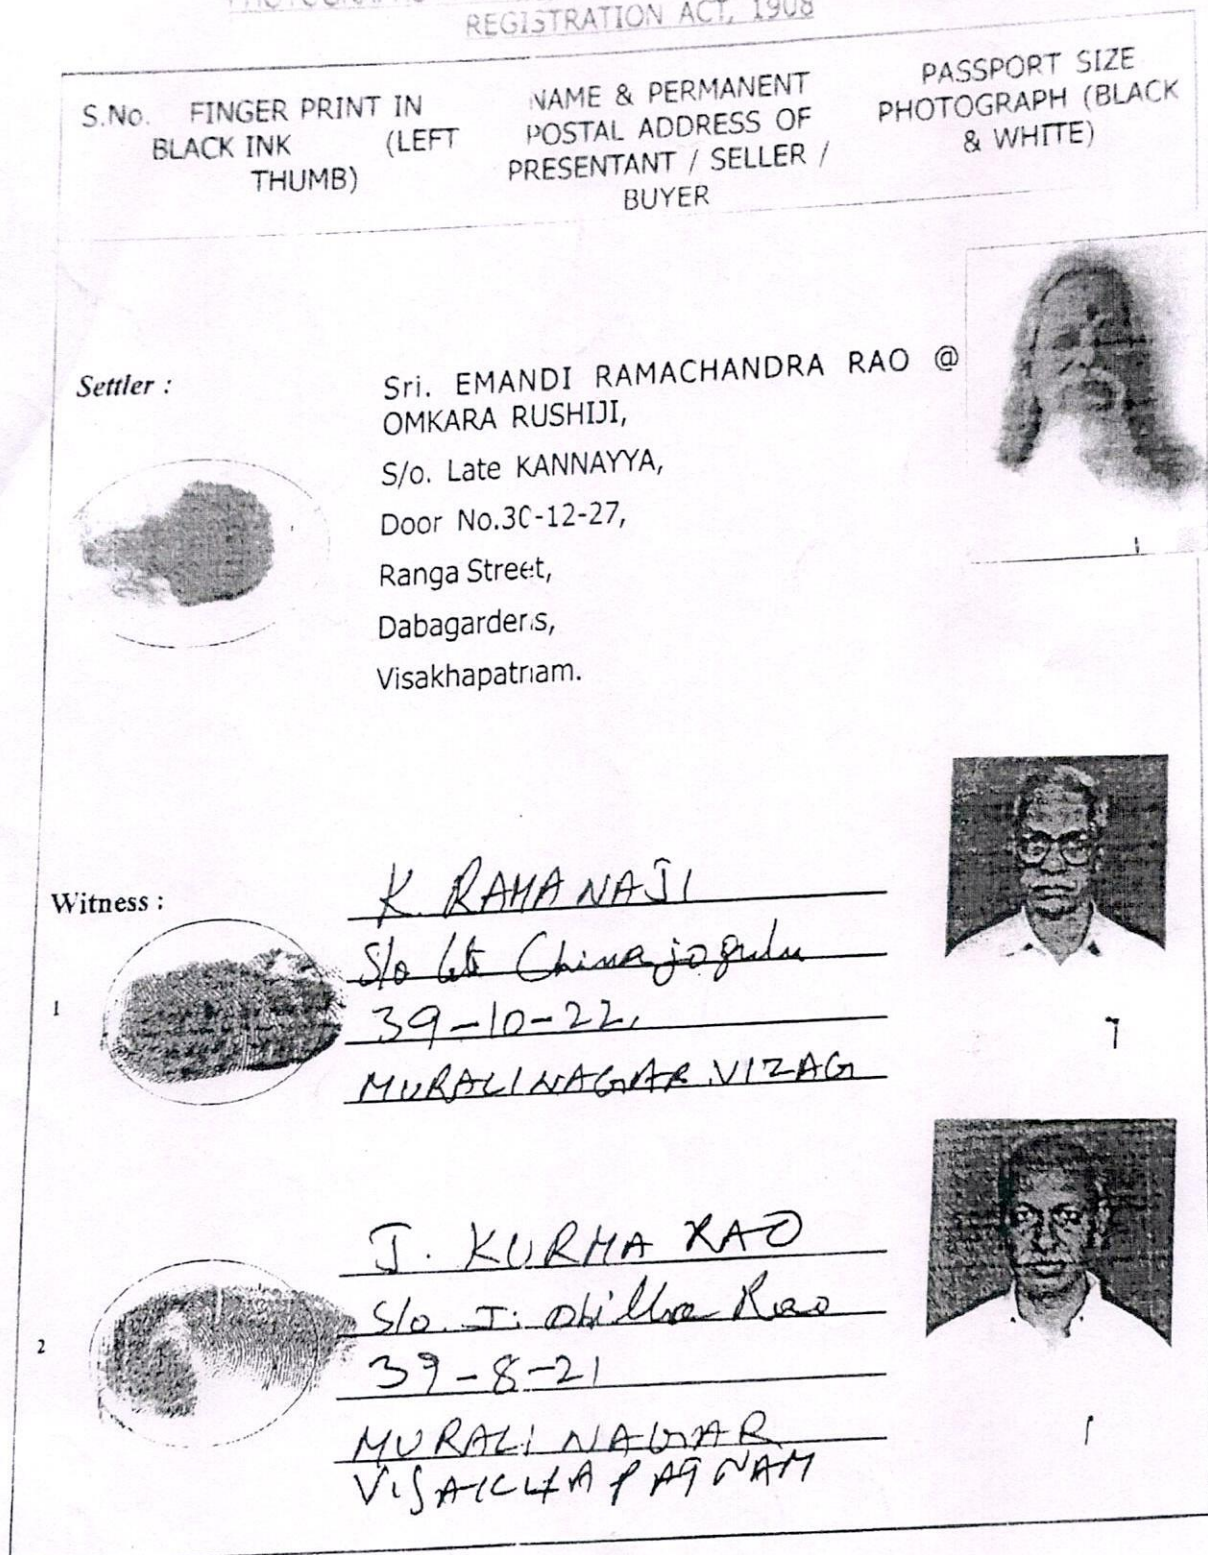 REGISTRATION ACT, 1908
S.No. FINGER PRINT IN BLACK INK (LEFT THUMB)
NAME & PERMANENT POSTAL ADDRESS OF PRESENTANT / SELLER / BUYER
PASSPORT SIZE PHOTOGRAPH (BLACK & WHITE)
Settler :
Sri. EMANDI RAMACHANDRA RAO @
OMKARA RUSHIJI,
S/o. Late KANNAYYA,
Door No.30-12-27,
Ranga Street,
Dabagardens,
Visakhapatnam.
Witness :
1
K. RAMA NAJI
S/o late China jogulu
39-10-22,
MURALINAGAR VIZAG
2
J. KURMA RAO
S/o. J. Rao
39-8-21
MURALI NAGAR
VISAKHAPATNAM